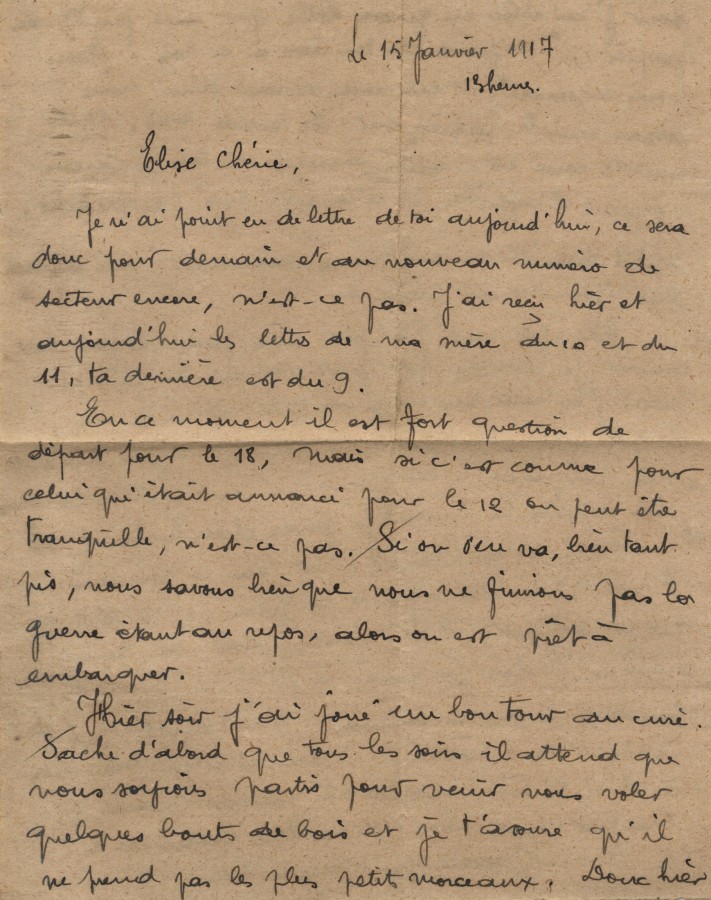 Le 15 Janvier 1917
13 heures.
Elise Chérie,
Je n'ai point eu de lettre de toi aujourd'hui, ce sera
donc pour demain et au nouveau numéro de
secteur encore, n'est-ce pas. J'ai reçu hier et
aujourd'hui les lettres de ma mère du 10 et du
11, ta dernière est du 9.
En ce moment il est fort question de
départ pour le 18, mais si c'est comme pour
celui qui était annoncé pour le 12 on peut être
tranquille, n'est-ce pas. Si on s'en va, bien tant
pis, nous savons bien que nous ne finirions pas la
guerre étant au repos, alors on est prêt à
embarquer.
Hier soir j'ai joué un bon tour au curé.
Sache d'abord que tous les soirs il attend que
nous soyions partis pour venir nous voler
quelques bouts de bois et je t'assure qu'il
ne prend pas les plus petits morceaux. Donc hier